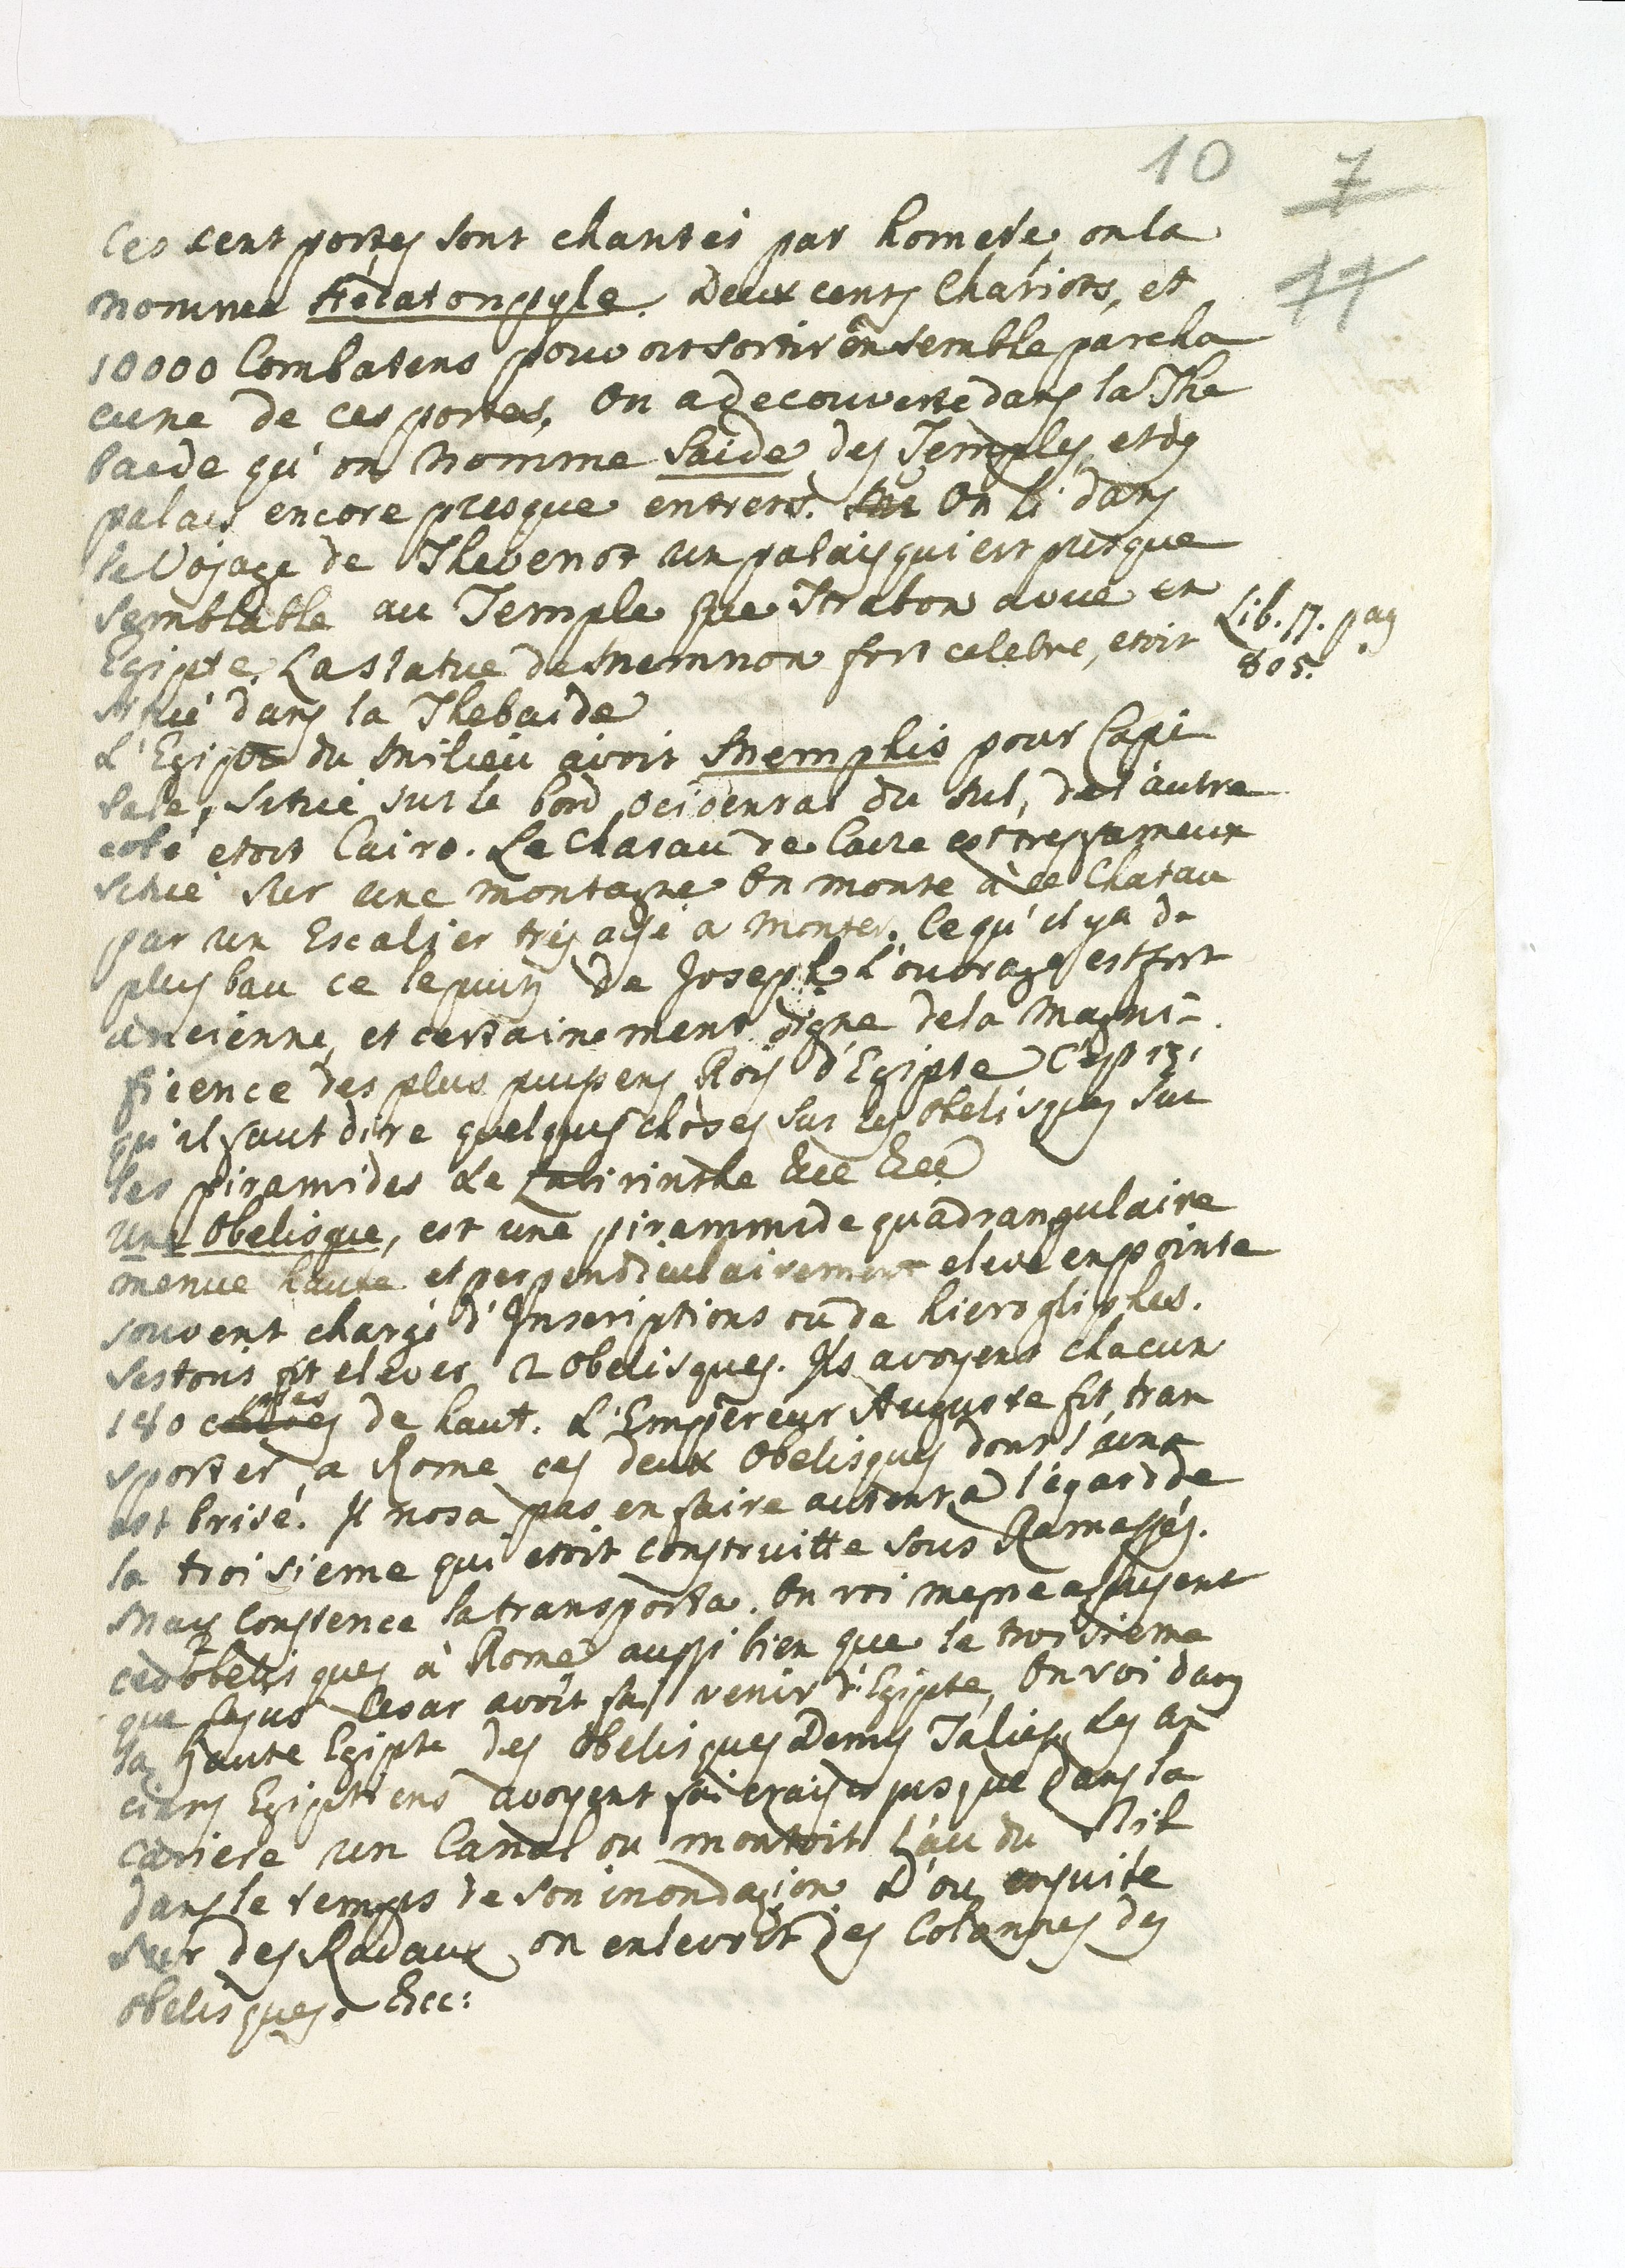 10
7
11
Ces cent portes sont chantés par homere, on la
nomme Hécatonpyle. Deux cents Chariots, et
10000 Combatens pouvoit sortir ensemble par cha
cune de ces portes. On a decouverte dans la The
baede qu'on nomme Saide des Temples, et des
palais encore presque entrers. On li dans
le Vojage de Thevenot un palais qui est presque
semblable au Temple que Strabon a vue en
Egipte. La statue de Memnon fort celebre, etoit
situé dans la Thebaide
Lib. 17. pag
805.
L'Egipte du Milieu avoit Memphis pour Capi
tale, situé sur le bord ocidental du Nil, de l'autre
coté etoit Cairo. Le Chatau de Caire est tres fameux
situé sur une montagne On monte à ce Chatau
par un Escalier tres aisé a monter. Ce qu'il y a de
plus bau ce le puits de Joseph L'ouvrage est fort
ancienne, et certainement digne de la Magni-
ficence des plus puissens Rois d'Egipte C'est ici
qu'il faut dire quelques choses sur les Obelisques sur
les piramides le Labirinthe Ecc Ecc
Une Obelisque, est une pirammide quadrangulaire
menue haute et perpendiculairement elevé en pointe
souvent chargé d'Inscriptions ou de hierogliphes.
Sestoris fit elever 2 obelisques. Ils avoyent chacun
180 de haut. L'Empereur Auguste fit tran
sporter a Rome ces deux Obelisques dont l'une
est brisé. Il nosa pas en faire autent a l'égard de
la troisieme qui etoit construitte sous Ramessés.
Mais Constence la transporta. On voi mesme a present
ced 2 obelisques à Rome aussi bien que la troisieme
que Cesar avoit fai venir d'Egipte, On voi dans
la haute Egipte des Obelisques Demis Taliés Les an
ciens Egiptiens avoyent fai craiser jusque dans la
cariere un Canal ou montoit l'au du Nil
dans le temps de son inondazion D'ou ensuite
sur des Radaux on enlevoit des Colannes des
obelisques Ecc: